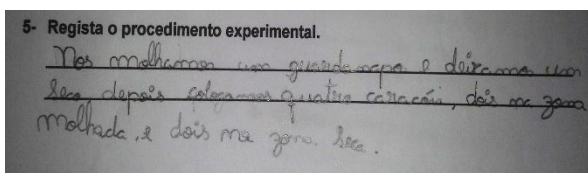 5- Regista o procedimento experimental.
Nos molhamos um guardanapo e deixamos um
seco depois colocamos quatro caracóis, dois na zona
molhada, e dois na zona seca.